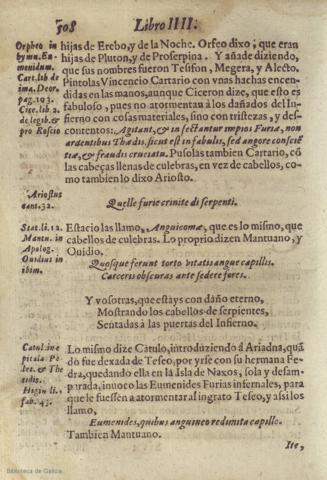 508 Libro IIII.
Orpheo in
hymn. Eu-
menidum.
Cart. lib. de
ima. Deor.
pag. 193.
Cice. lib. 2.
de legib. &
pro Roscio
hijas de Erebo, y de la Noche. Orfeo dixo, que eran
hijas de Pluton, y de Proserpina. Y añade diziendo,
que sus nombres fueron Tesifon, Megera, y Alecto.
Pintolas Vincencio Cartario con vnas hachas encen-
didas en las manos, aunque Ciceron dize, que esto es
fabuloso, pues no atormentan à los dañados del In-
fierno con cosas materiales, sino con tristezas, y des-
contentos: Agitant, & insectantur impios Furiæ, non
ardentibus Thædis, sicut est in fabulis, sed angore conscië
tiæ, & fraudis cruciatu. Pusolas tambien Cartario, cõ
las cabeças llenas de culebras, en vez de cabellos, co-
mo tambien lo dixo Ariosto.
Ariostus
cant. 32.
Quelle furie crinite di serpenti.
Stat. li. 12.
Mantu. in
Apolog.
Ouidius in
ibim.
Estacio las llamo, Anguicomæ, que es lo mismo, que
cabellos de culebras. Lo proprio dizen Mantuano, y
Ouidio.
Quosque ferunt torto vitatis angue capillis.
Carceris obscuras ante sedere fores.
Y vosotras, que estàys con daño eterno,
Mostrando los cabellos de serpientes,
Sentadas à las puertas del Infierno.
Catul. in e
pitala. Pe-
lei. & The
tidis.
Higin li.
fab. 43.
Lo mismo dize Catulo, introduziendo â Ariadna, quã
dò fue dexada de Teseo, por yrse con su hermana Fe-
dra, quedando ella en la Isla de Naxos, sola y desam-
parada, inuoco las Eumenides Furias infernales, para
que le fuessen a atormentar al ingrato Teseo, y assi los
llamo,
Eumenides, quibus anguineo redimita capillo.
Tambien Mantuano.
Ite,
Biblioteca de Galicia